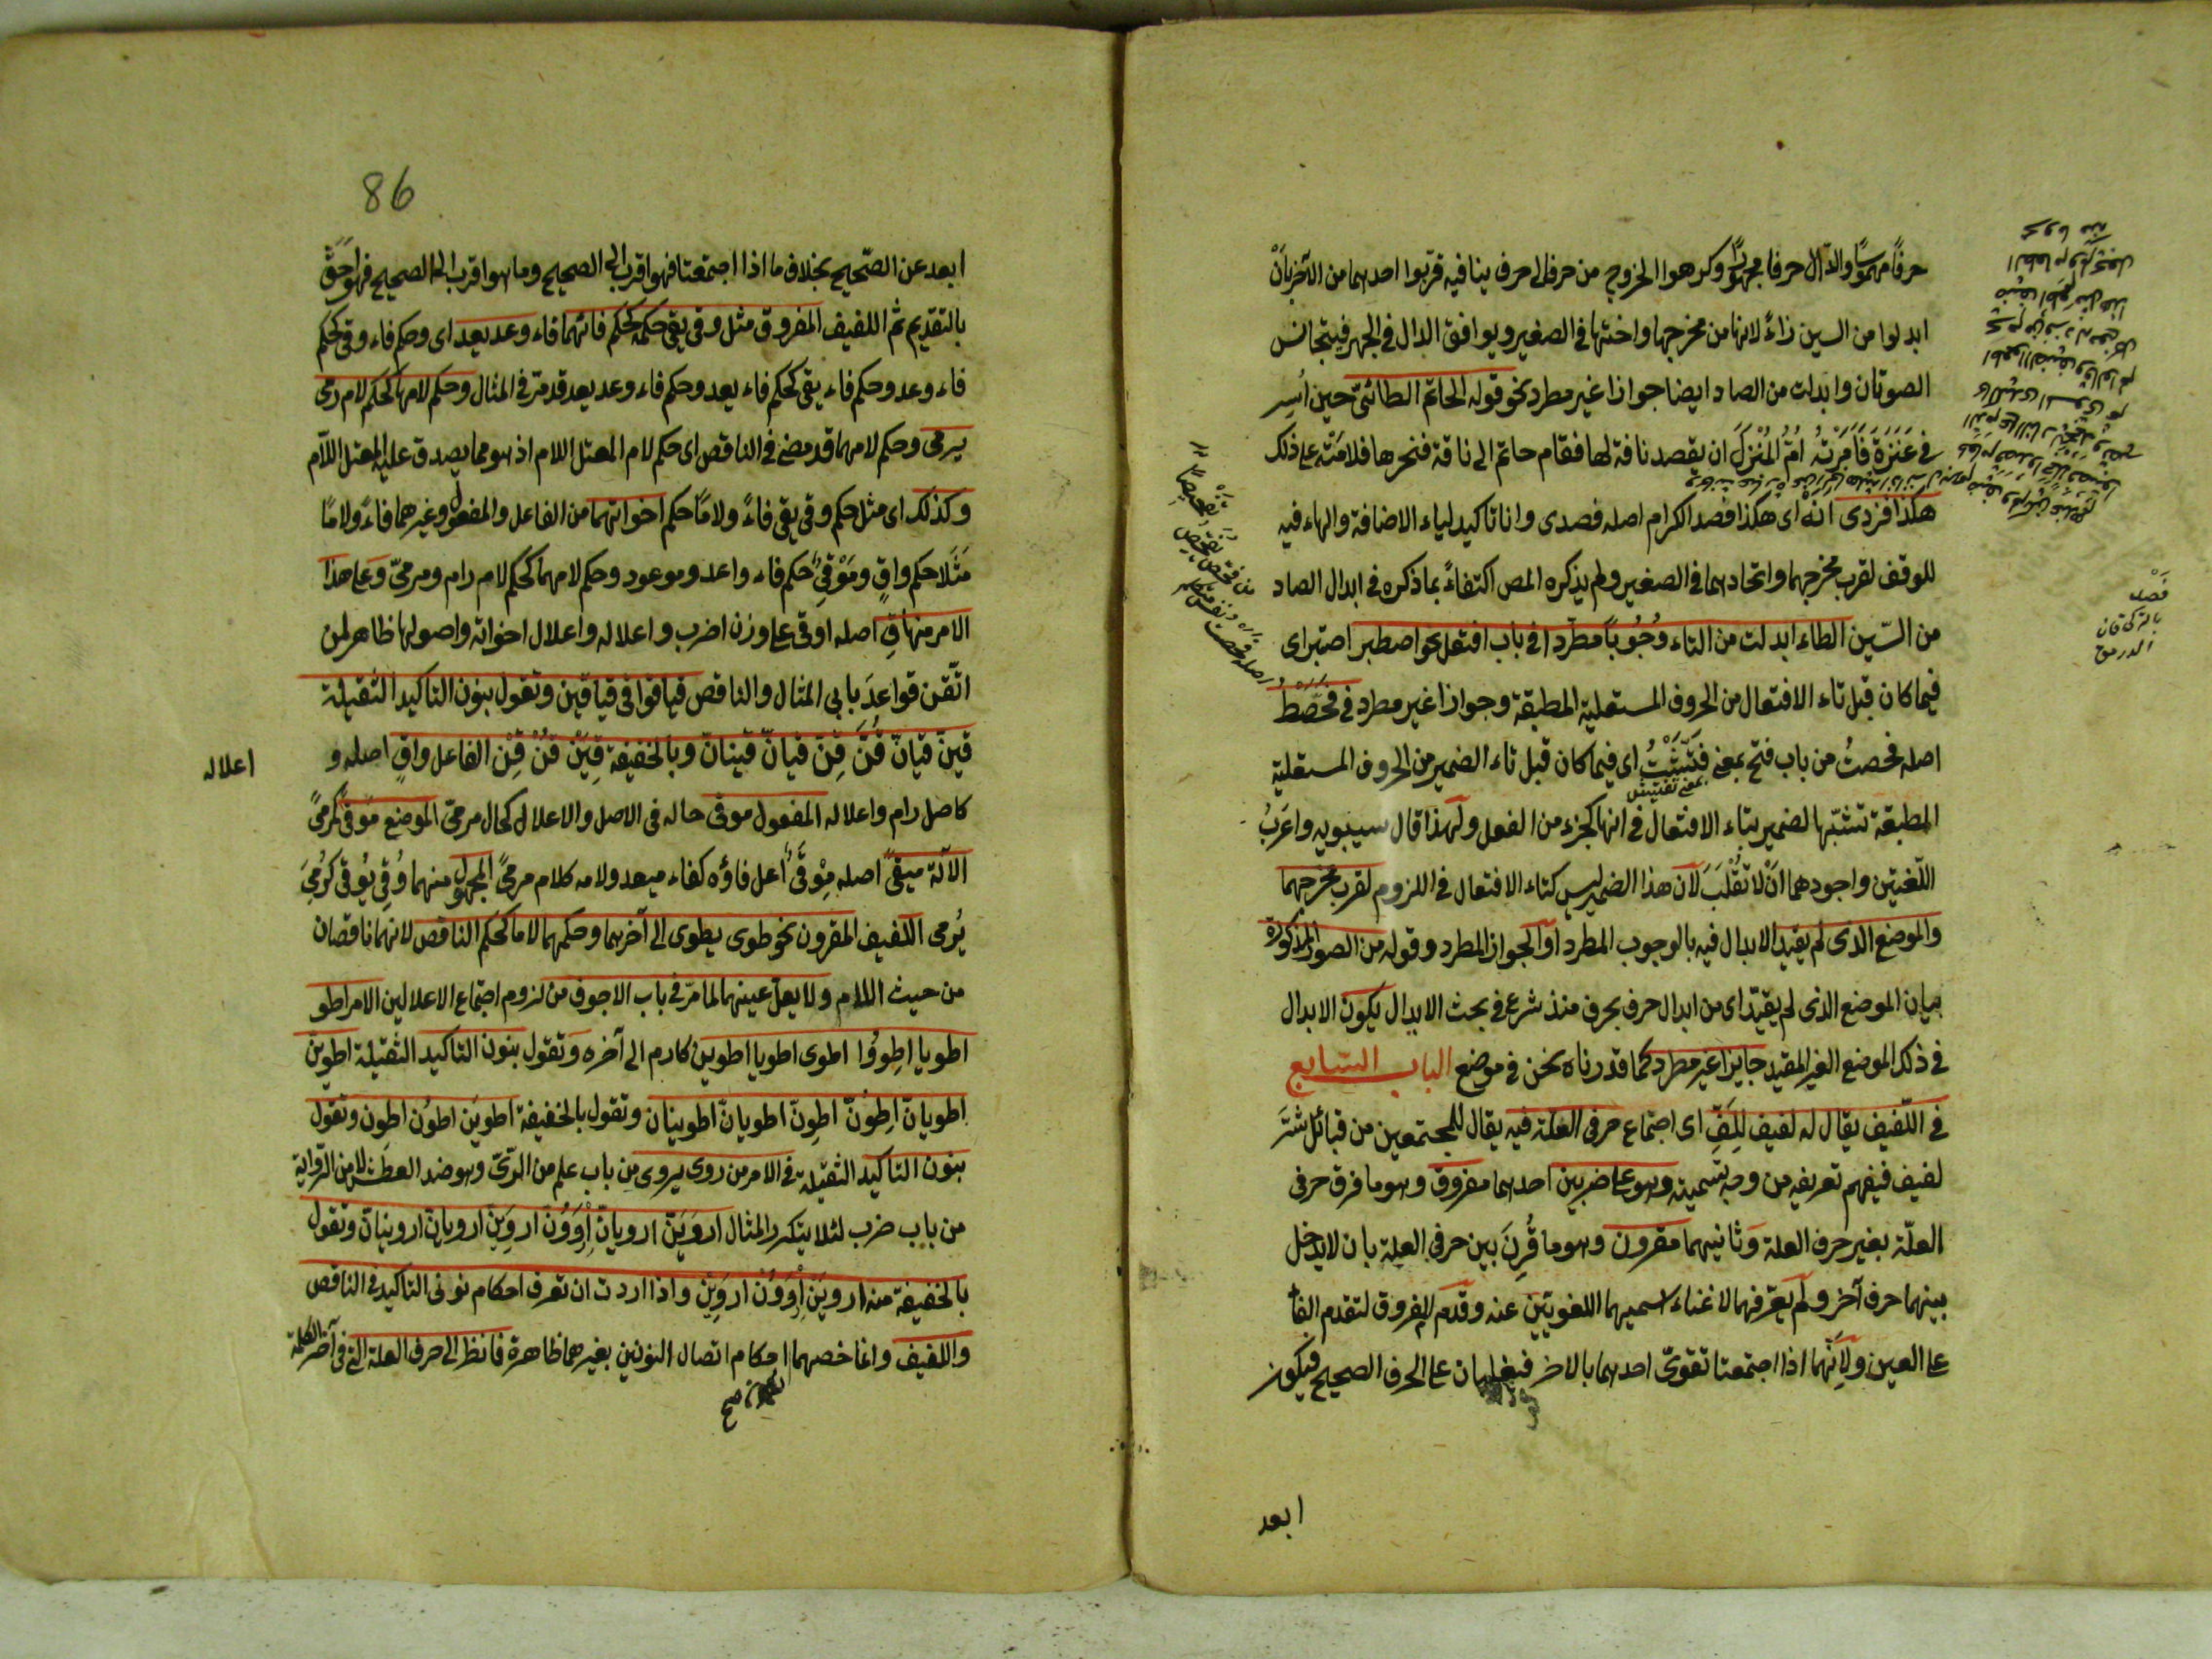 حرفًا مهموسًا والدّال حرفا مجهورًا وكرهوا الخروج من حرف الى حرف ينافيه قربوا احدهما من الآخر بأن
ابدلوا من السين زاءً لانها من مخرجها واختها في الصغير ويوافق الدال في الجهر فيتجانس
الصوتان وابدلت من الصاد ايضا جوازا غير مطرد نحو قوله الحاتم الطائيّ حين أُسِر
في عَنَزَة فَأَمَرَتْهُ امُّ المُنْزِلِ ان يقصد ناقة لها فقام حاتم الى ناقة فنحرها فلامَتْه على ذلك
هكذا فزدى انه اى هكذا فصد الكرام اصله فصدى وانا تاكيد لياء الاضافة والهاء فيه
للوقف لقرب مخرجهما واتحادهما في الصغير ولم يذكره المص اكتفاءً بما ذكره في ابدال الصاد
من السّين الطاء ابدلت من التاء وُجُوبًا مطّردا في باب افتعل نحو اصطبر اصتبر اى
فيما كان قبل تاء الافتعال من الحروف المستعلية المطبقة وجوازا غير مطرد في فحَصَطُ
اصله فحصتُ من باب فتح بمعنى فَتَّشْتُ اى فيما كان قبل تاء الضمير من الحروف المستعلية
بمعنى تفتيش
المطبقة تشبّها لضمير بتاء الافتعال في انها كالجزء من الفعل ولهذا قال سيبويه واعَربُ
اللّغتين واجودهما انْ لا تُقْلَبَ لأن هذا الضمير ليس كتاء الافتعال في اللزوم لقرب مخرجهما
والموضع الذى لم يقيد الابدال فيه بالوجوب المطرد او الجواز المطرد وقوله من الصور المذكورة
بيان الموضع الذى لم يقيّد اى من ابدال حرف بحرف منذ شرع في بحث الابدال يكون الابدال
في ذلك الموضع الغير المقيد جايزا غير مطرد كما قدرناه نحن في موضع الباب السّابع
في اللّفيف يقال له لفيف لِلَفِّ اى اجتماع حرفى العلّة فيه يقال للمجتمعين من قبائل شتّى
لفيف فيفهم تعريفه من وجه تسميته وهو على ضربين احدهما مفروق وهو ما فرق حرفى
العلّة بغير حرف العلة وثانيهما مقرون وهو ما قُرِنَ بين حرفى العلة بان لا يدخل
بينهما حرف آخر ولم يعرّفهما لاغناء اسميهما اللغويّين عنه وقدّم المفروق لتقدم الفاء
على العين ولأنّهما اذا اجتمعتا تقوىّ احدهما بالاخر فيغلبان على الحرف الصحيح فيكون
ابعد
فَصْد
بالتركى قان
الدرمق
86
ابعد عن الصّحيح بخلاف ما اذا اجتمعتا فهو اقرب الى الصحيح وما هو اقرب الى الصحيح فهو احَقّ
بالتقديم ثمّ اللفيف المفروق مثل وقى يقى حكمه كحكم فائهما فاء وعد يعد اى وحكم فاء وقى كحكم
فاء وعد وحكم فاء يقى كحكم فاء يعد وحكم فاء وعد يعد قد مرّ في المثال وحكم لامهما كحكم لام رمى
يرمى وحكم لامهما قد مضى في الناقص اى حكم لام المعتل اللام اذ هو مما يصدق عليه المعتل اللّام
وكذلك اى مثل حكم وقى يقى فاءً ولامًا حكم اخواتهما من الفاعل والمفعول وغيرهما فاءً ولامًا
مَثَلا حكم واقٍ ومَوْقِىّ حكم فاء واعد وموعود وحكم لامهما كحكم لام رام ومرمىّ وعلى هذا
الامر منها قِ اصله اوقى على وزن اضرب واعلاله واعلال اخواته واصولها ظاهر لمن
اتّقن قواعدَ بابى المثال والناقص قيا قوا قى قيا قين وتقول بنون التاكيد الثقيلة
قينّ قيانّ قُنَّ قِنّ قيانّ قينانّ وبالخفيفة قِيَنْ قُنْ قِنْ الفاعل واقٍ اصله و
اعلاله
كاصل رام واعلاله المفعول موقى حاله في الاصل والاعلال كحال مرمىّ الموضع مَوقىً كمرمىً
الآلة ميقىً اصله مِوْقَىٌ اُعل فاؤه كفاء ميعد ولامه كلام مرمىً المجهول منهما وُقِى يُوقى كرُمِىَ
يُرمى اللفيف المقرون نحو طوى يطوى الى آخرهما وحكمهما لاما كحكم الناقص لانهما ناقصان
من حيث اللام ولا يعلّ عينهما لما مرّ في باب الاجوف من لزوم اجتماع الاعلالين الامر اطو
اطويا اطووُا اطوى اطويا اطوين كارم الى آخره وتقول بنون التاكيد الثقيلة اطوينّ
اطويانّ اطوُنّ اطوِنّ اطويانّ اطوينان وتقول بالخفيفة اطوين اطوُن اطوِن وتقول
بنون التاكيد الثقيلة في الامر من روى يروى من باب علم من الرّىّ وهو ضد العطش لا من الرّواية
من باب ضرب لئلا يتكرر المثال اروَيَنّ ارويانّ اِرْوَوُنّ اروَيِنّ ارويانّ اروينانّ وتقول
بالخفيفة منه اروَيَن اِرْوَوُن اروَيِن واذا اردت ان تعرف احكام نونى التاكيد في الناقص
واللفيف وانما خصهما احكام اتصال النونين بغيرهما ظاهرة فانظر الى حرف العلة التى في آخر الكلمة